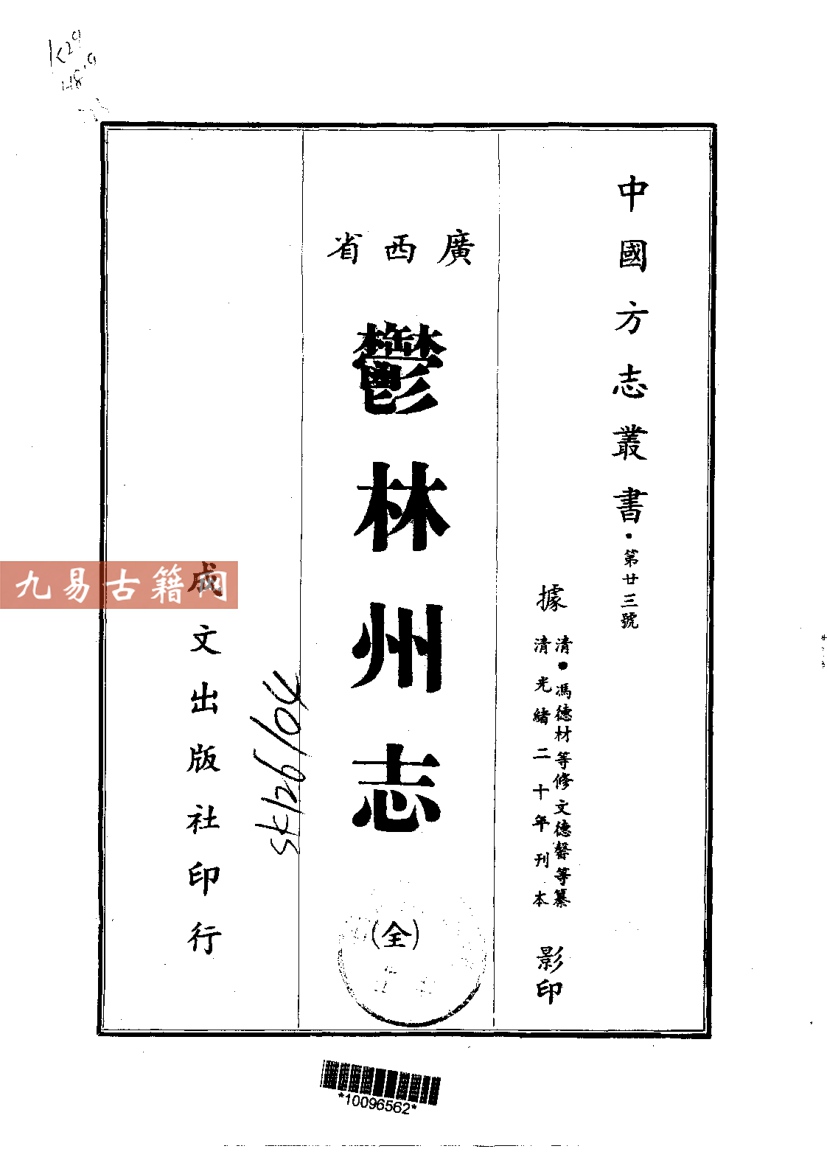 中國方志叢書・第廿三號
據
清・馮德材等修文德馨等纂
清光緒二十年刊本
影印
廣西省
鬱林州志
(全)
成文出版社印行
九易古籍网
K29
SK126/04
*10096562*